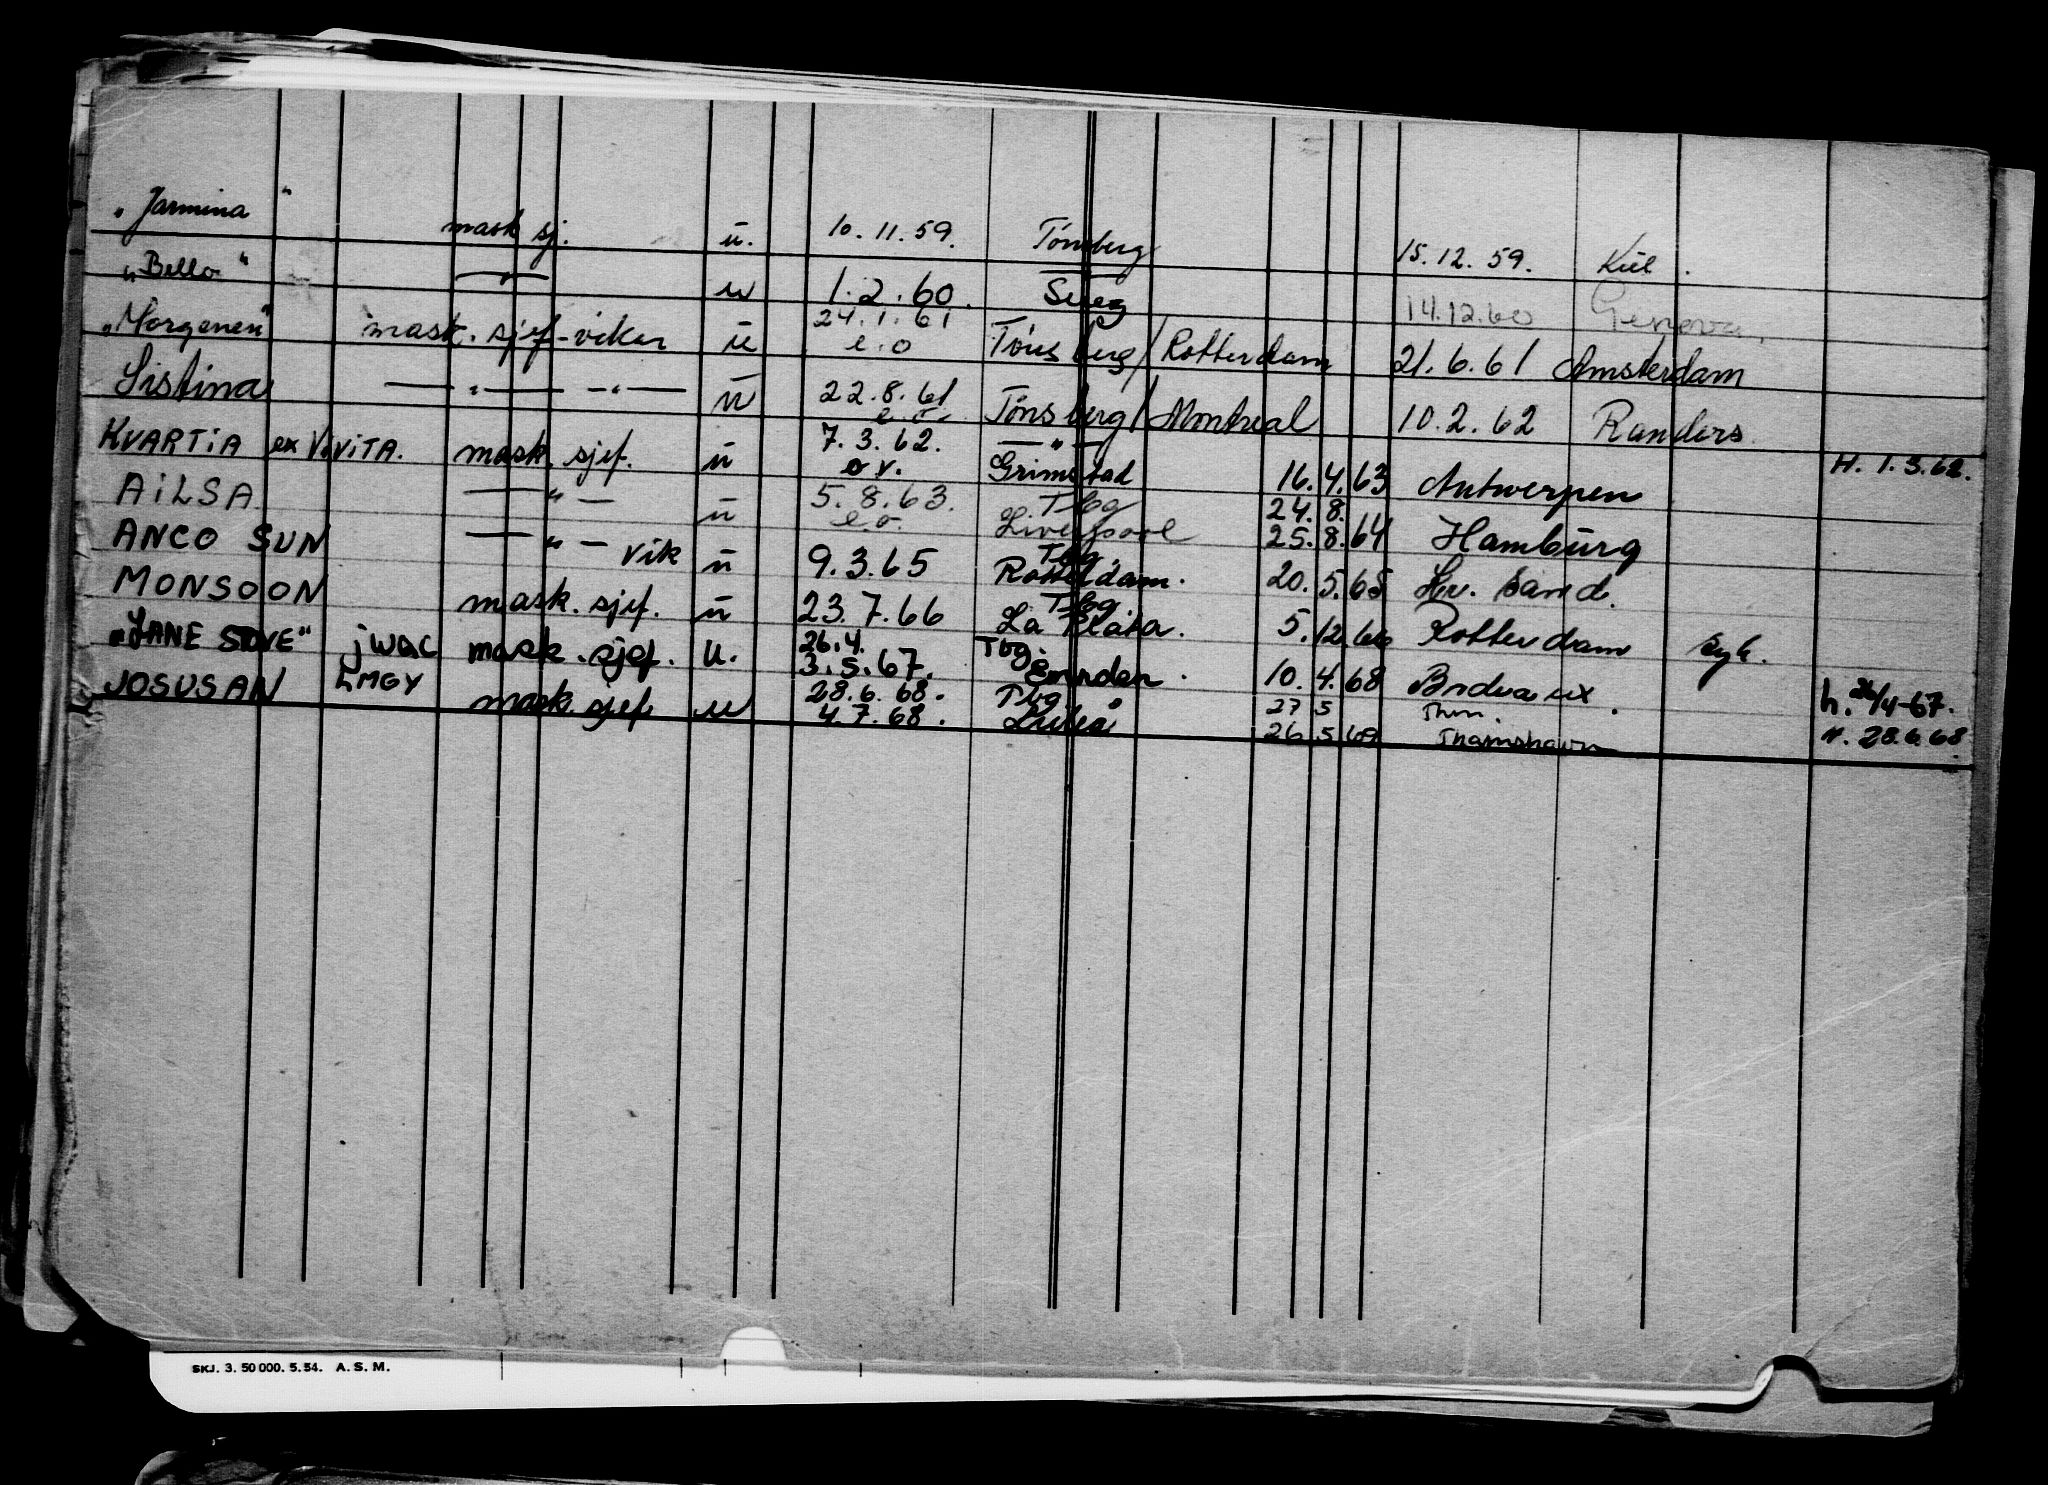 "Jarmina" mask sj. ü. 10.11.59. Tönsberg 15.12.59. Kiel.
"Bello" —"— u 1.2.60. Suez 14.12.60 Genova.
"Morgenen" mask. sjef-vikar ü 24.1.61 e.o Tönsberg/Rotterdam 21.6.61 Amsterdam
Sistina —"— —"— ü 22.8.61 e.o Tönsberg/Montreal 10.2.62 Randers
KVARTIA ex ViVITA. mask. sjef. ü 7.3.62. o.v. —"— Grimstad 16.4.63 Antwerpen H. 1.3.62.
AiLSA —"— ü 5.8.63. e.o. Tbg Liverpool 24.8. 25.8.64 Hamburg
ANCO SUN —"— vik ü 9.3.65 Tbg Rotterdam. 20.5.65 Kr. sand.
MONSOON mask. sjef. ü 23.7.66 Tbg. La Plata. 5.12.66 Rotterdam syk.
"JANE STOVE" jWQC mask. sjef. u. 26.4. 3.5.67. Tbg. Emden. 10.4.68 Bodeaux. h. 26/4-67.
JOSUSAN LMGY mask sjef u 28.6.68. 4.7.68. Tbg Luleå 27 5 26.5.69 Thamshavn n. 28.6.68
SKJ. 3. 50 000. 5.54. A. S. M.